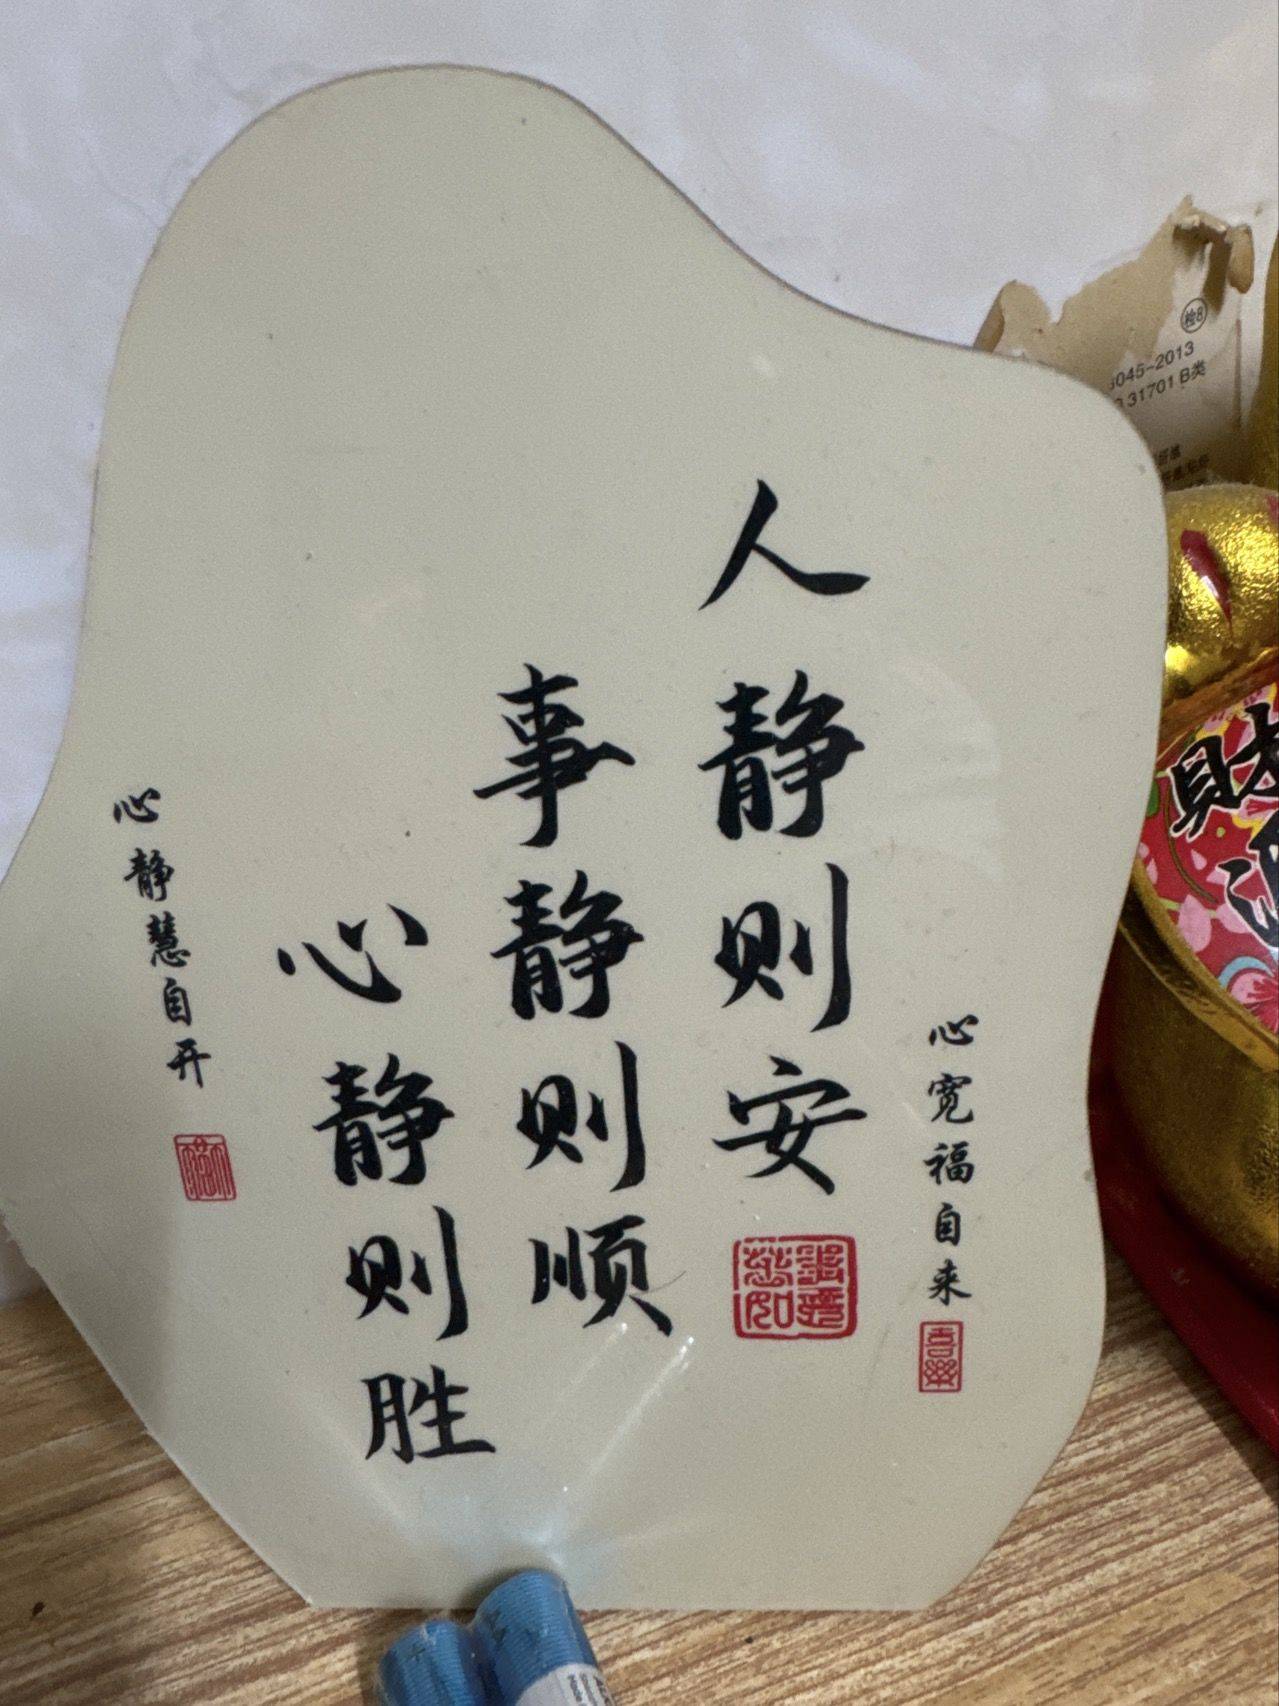 心宽福自来
喜乐
人静则安
事静则顺
心静则胜
心静慧自开
检8
5045-2013
31701 B类
財